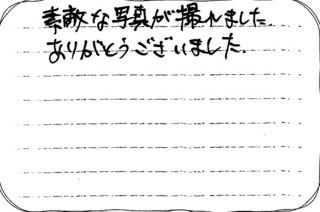 素敵な写真が撮れました.
ありがとうございました.